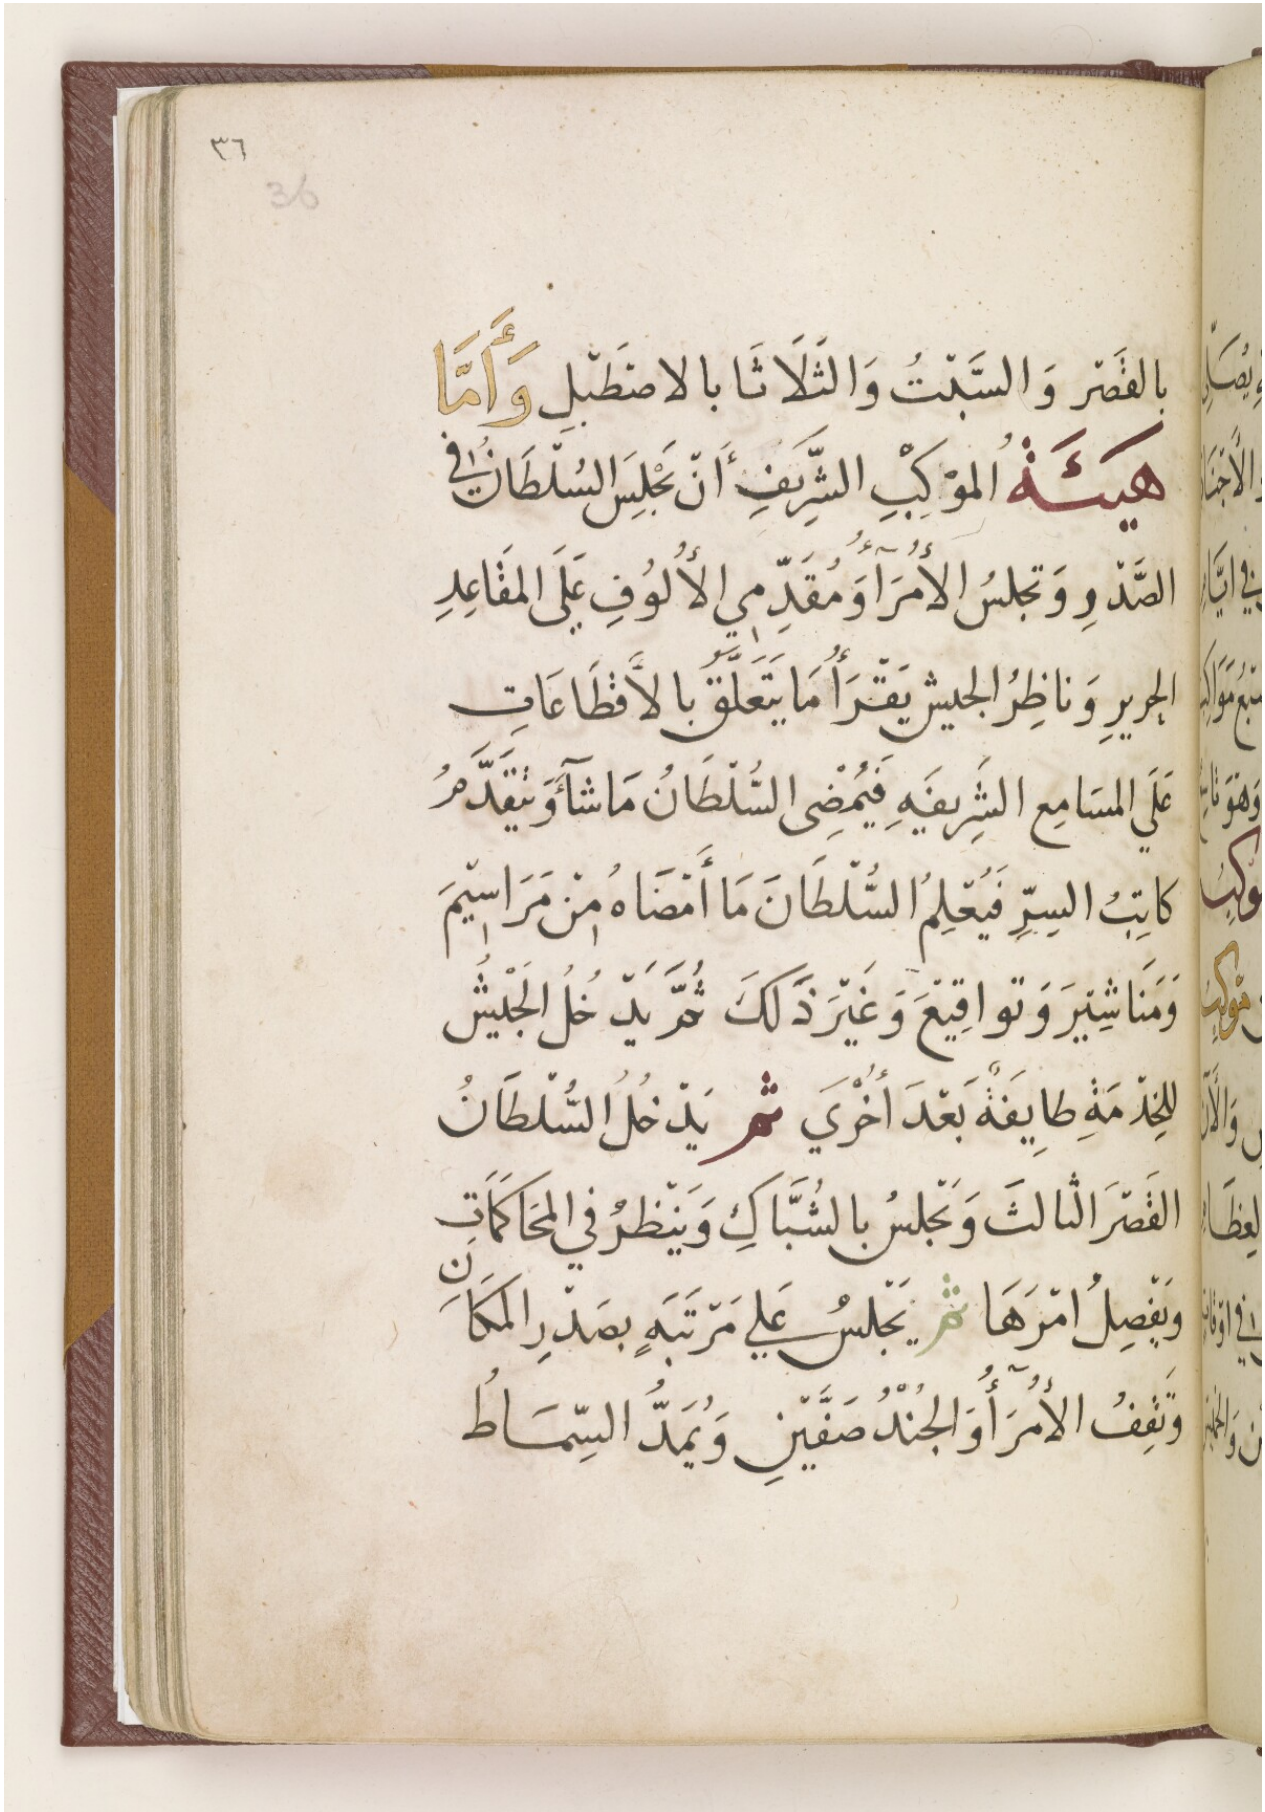 ٣٦
36
بِالقَصْرِ وَالسَّبْتُ وَالثَّلَاثَا بالاصْطَبْلِ وَأَمَّا
هَيْئَةُ المَوْكِبِ الشَّرِيفِ أَنْ يَجْلِسَ السُلْطَانُ فِي
الصَّدْرِ وَتجلسُ الأُمَرَآءُ وَمُقَدِّمِي الأُلُوفِ عَلَى المقَاعِدِ
الحريرِ وَناظِرُ الجيش يَقْرَأُ مَا يَتَعَلَّقُ بالاَقْطَاعَاتِ
عَلَي المسَامِعِ الشَرِيفَهِ فَيُمْضِى السُّلْطَانُ مَا شَآءَ وَيَتَقَدَّمُ
كاتِبُ السِرِّ فَيُعْلِمُ السُّلْطَانَ مَا أَمْضَاهُ مِنْ مَرَاسِيْمَ
وَمَنَاشِيْرَ وَتواقِيْعَ وَغَيْرَ ذَلكَ ثُمَّ يَدْخُلُ الجَيْشُ
للخِدْمَةِ طايِفَةٌ بَعْدَ أُخْرَي ثم يَدْخُلُ السُّلْطَانُ
القَصْرَ الثالثَ وَيَجْلسُ بالشُبَّاكِ وَيَنْظرُ فِي المحَاكَمَاتِ
ويَفْصِلُ امْرَهَا ثم يَجْلسُ عَلي مَرْتَبَهٍ بصَدْرِ المَكَانِ
وَتَقِفُ الأُمَرَآءُ وَالجُنْدُ صَفَّيْنِ وَيُمَدُّ السِّمَاطُ